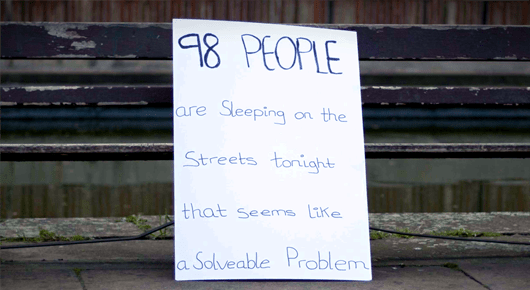 98 PEOPLE
are Sleeping on the
Streets tonight
that seems like
a Solveable Problem